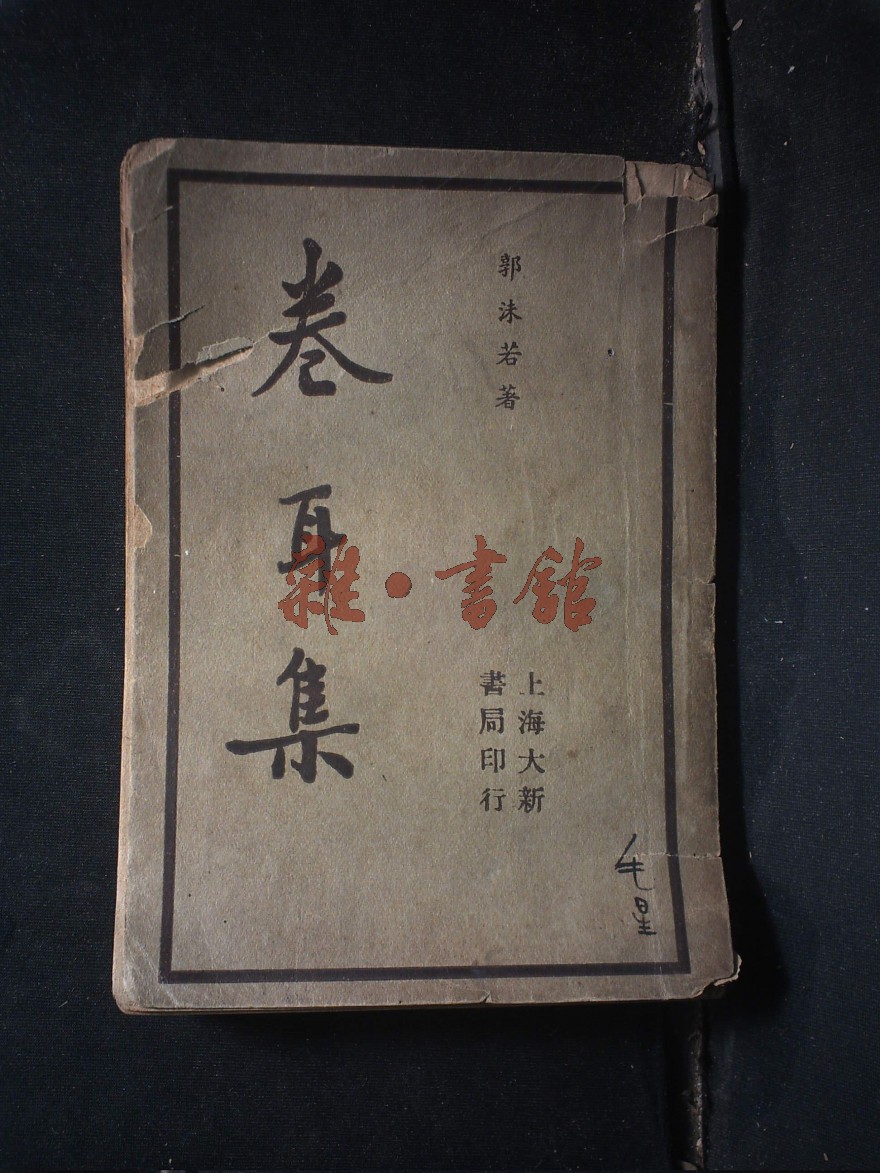 郭沫若著
卷耳集
上海大新
書局印行
雜·書館